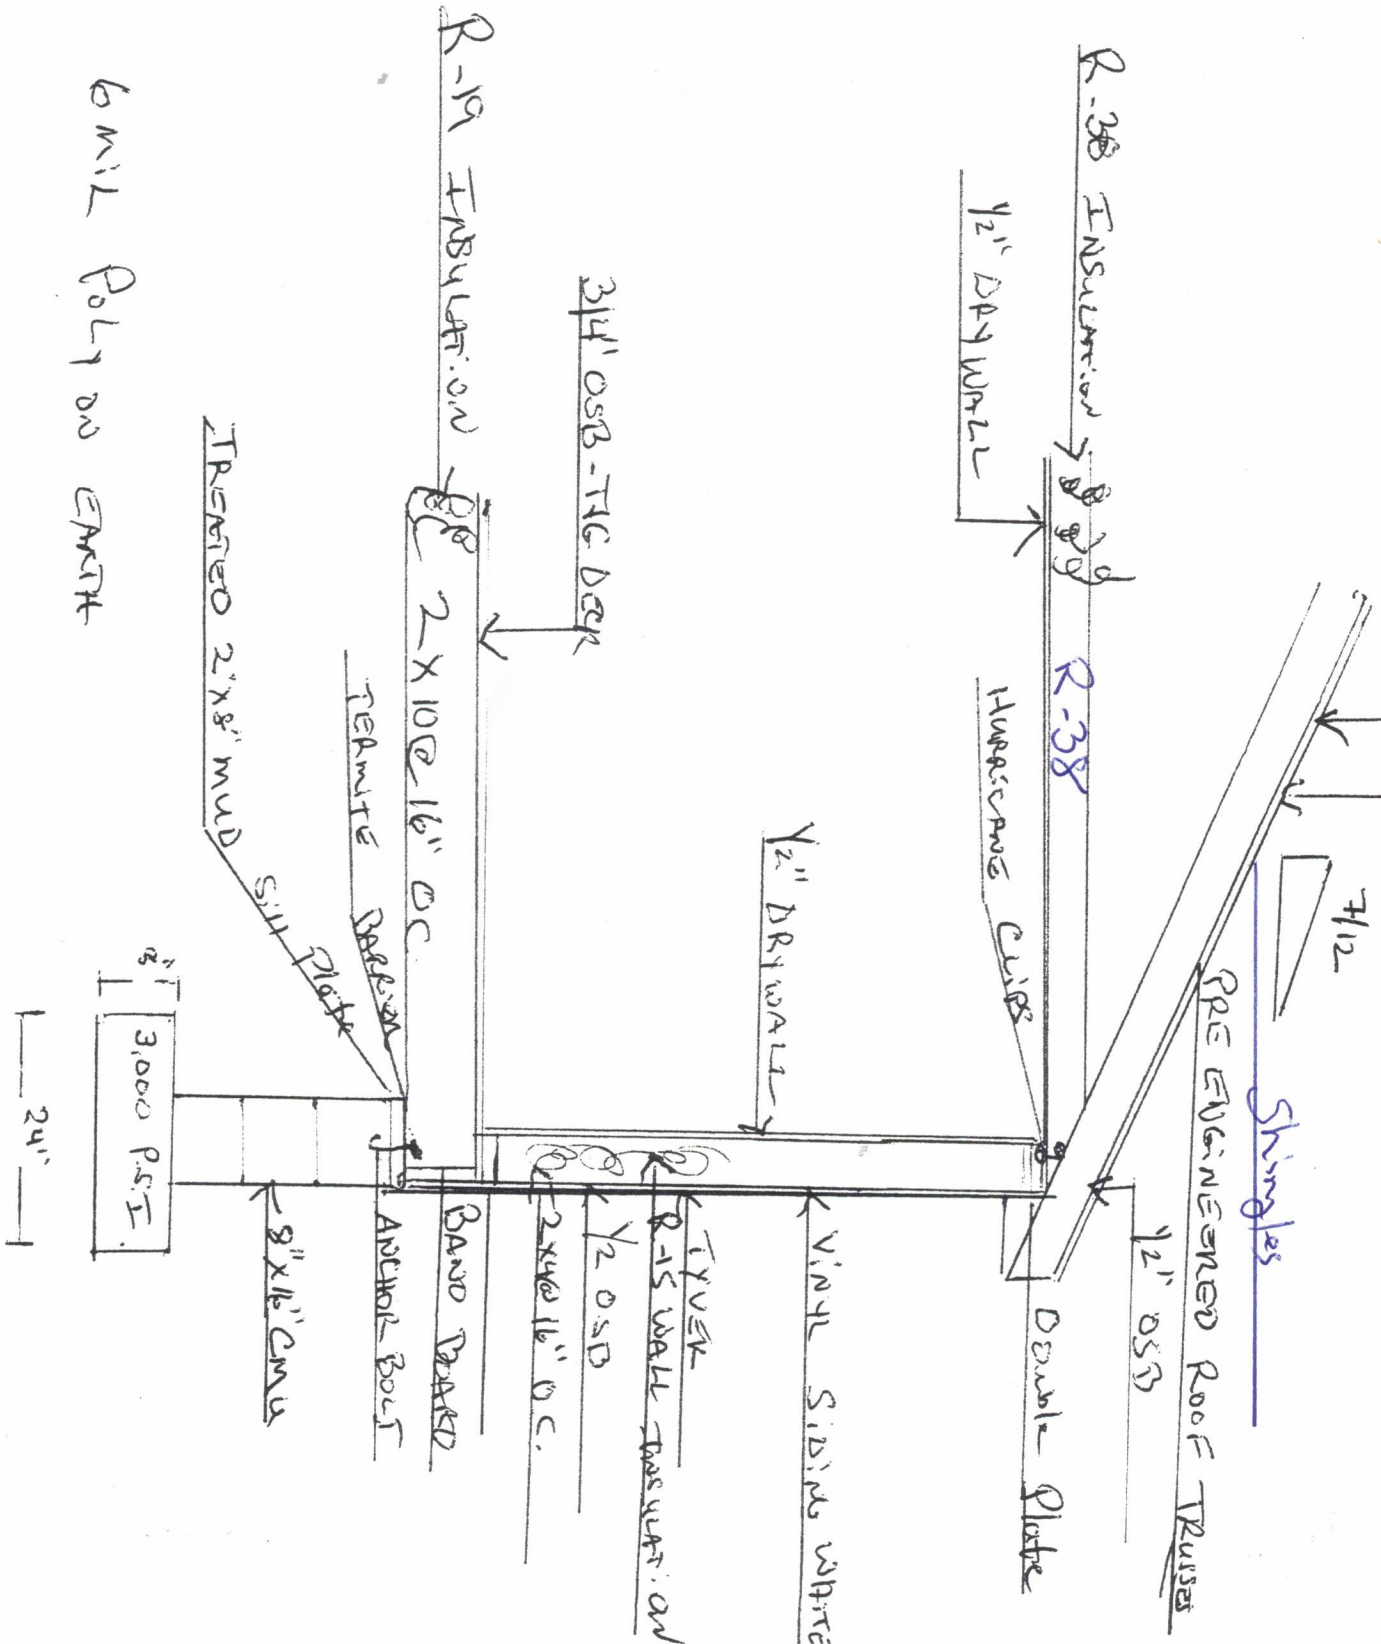 7/12
Shingles
PRE ENGINEERED ROOF TRUSSES
1/2" OSB
Double Plate
R-38 INSULATION
R-38
1/2" DRYWALL
HURRICANE CLIPS
VINYL SIDING WHITE
1/2" DRYWALL
TYVEK
R-15 WALL INSULATION
1/2 OSB
2x4@16" OC.
3/4" OSB-T+G DECK
R-19 INSULATION
2x10@16" OC
BAND BOARD
TERMITE BARRIER
ANCHOR BOLT
TREATED 2"x8" MUD Sill Plate
8"x16" CMU
6 MIL POLY ON EARTH
8"
3,000 P.S.I
24"